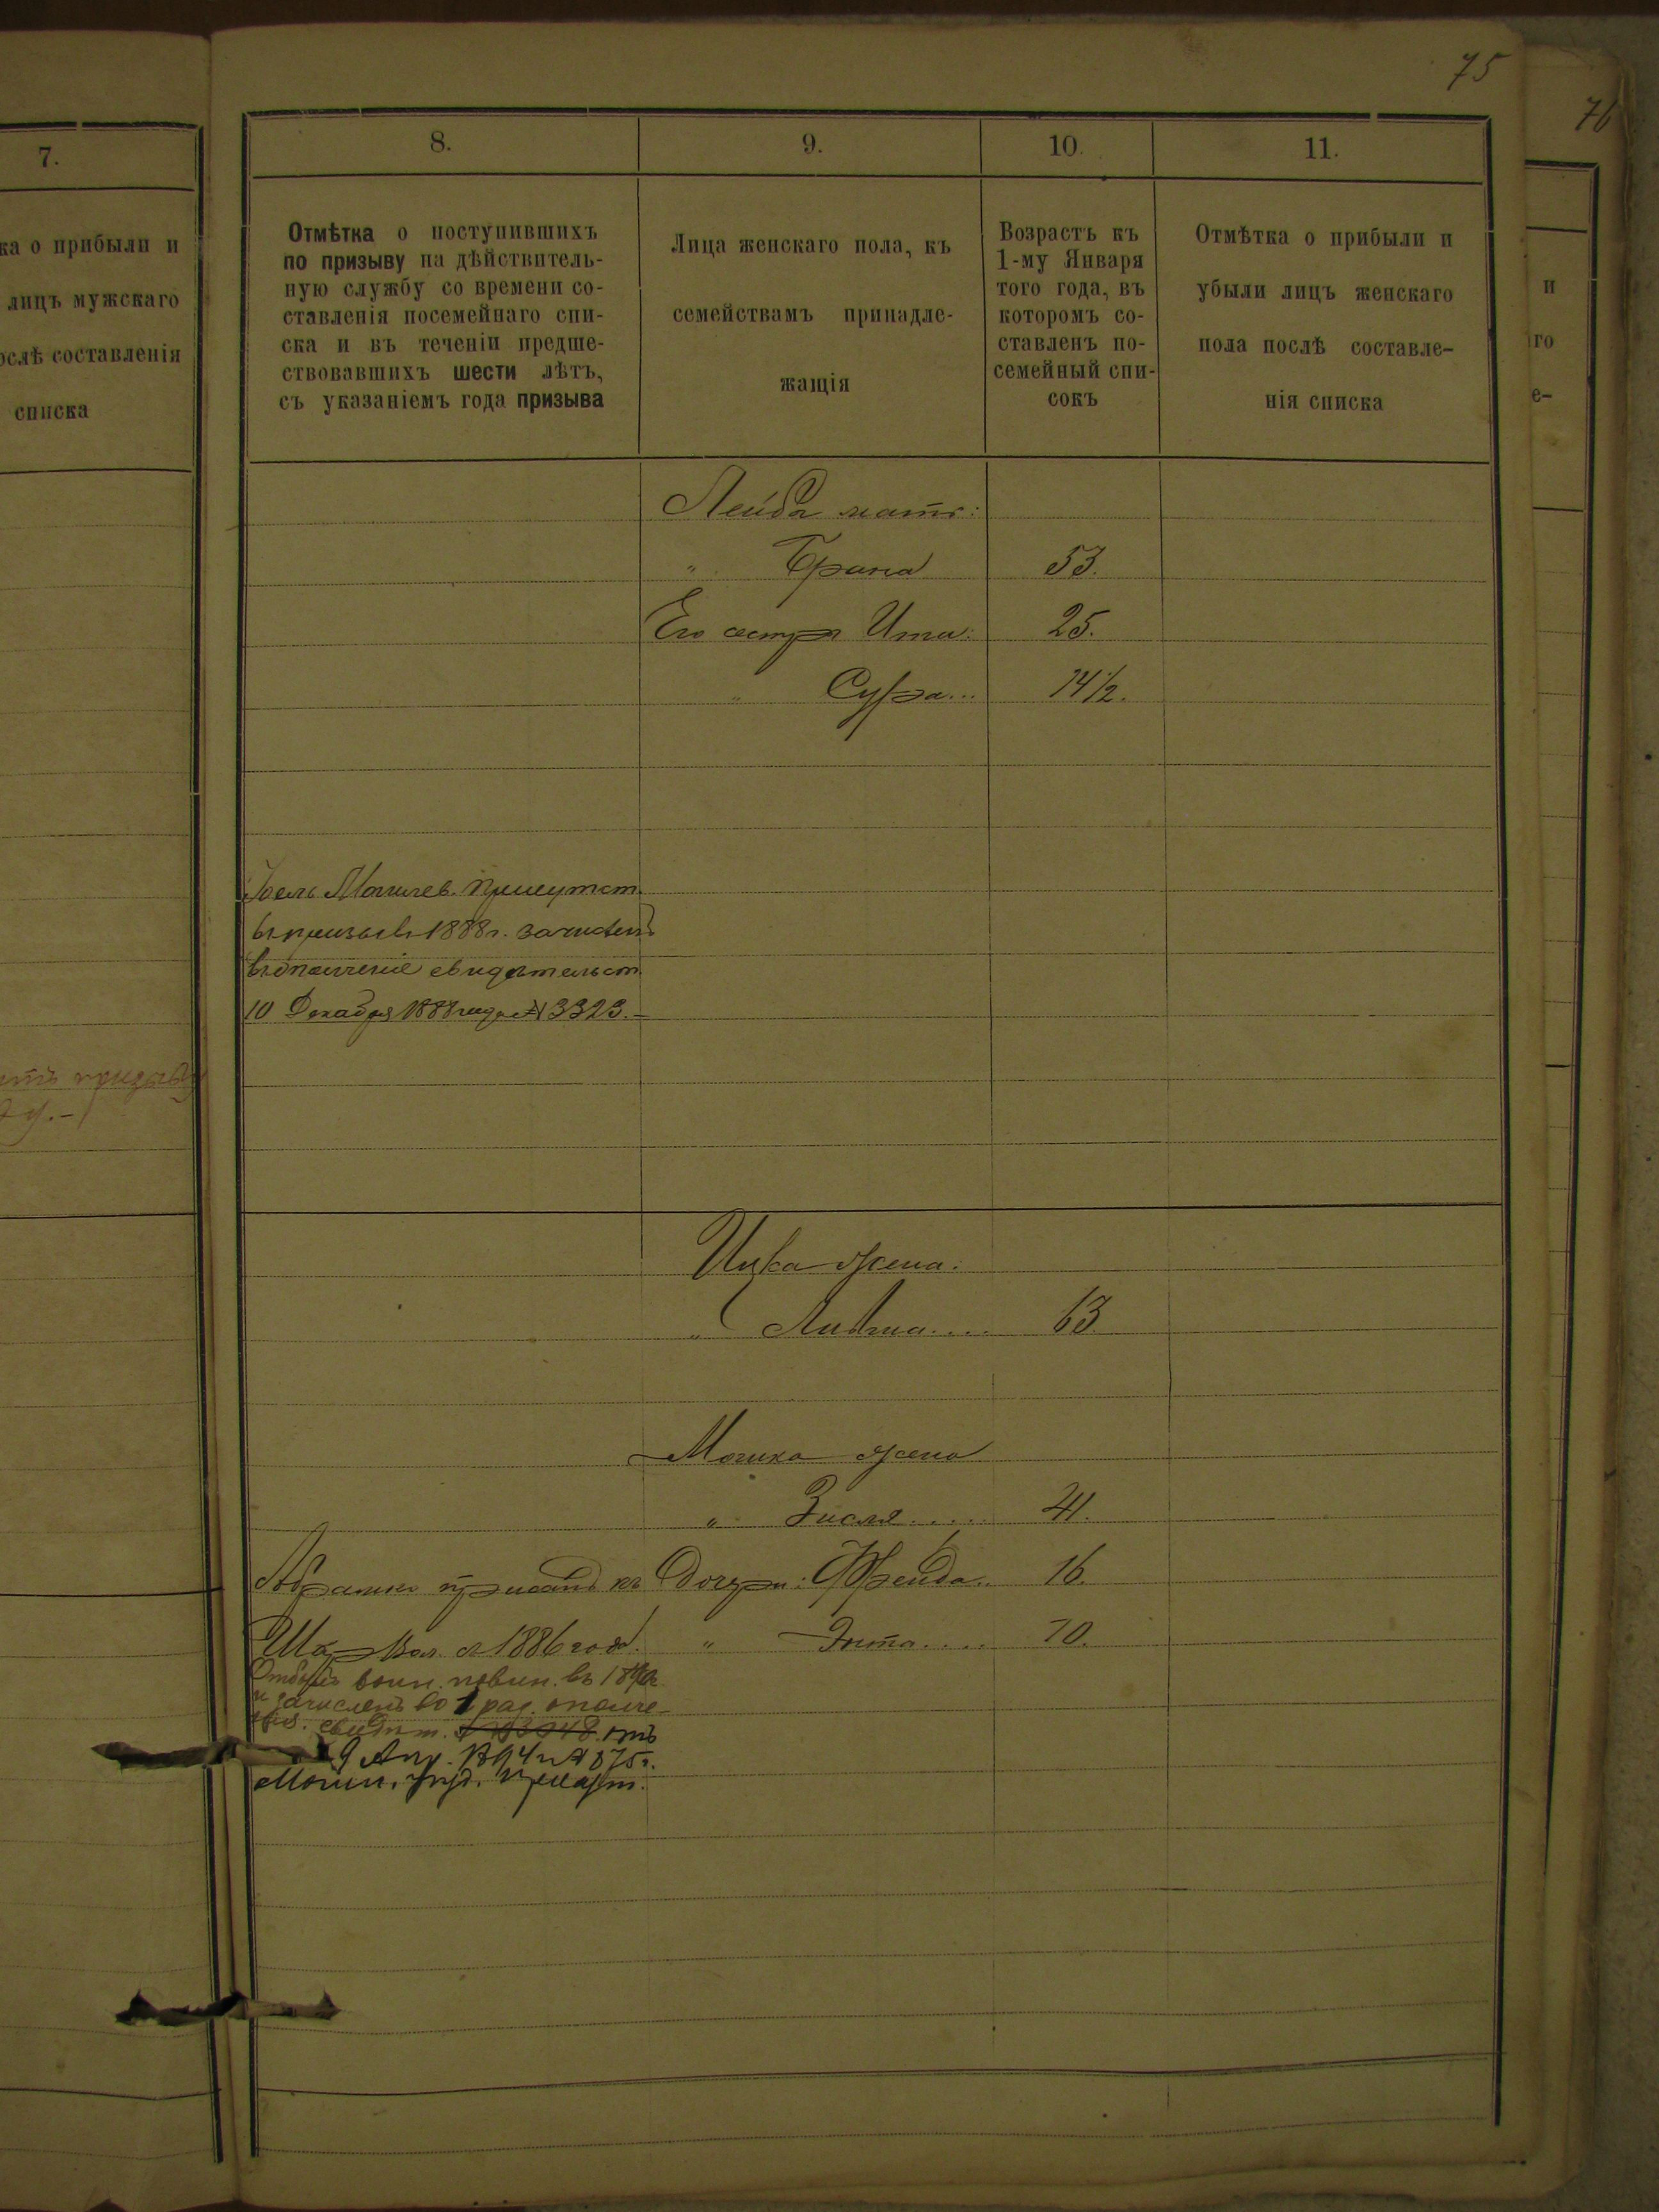 75
76
7.
ка о прибыли и
лицъ мужскаго
ослѣ составленія
списка
8.
9.
10.
11.
Отмѣтка о поступившихъ
по призыву на дѣйствитель-
ную службу со времени со-
ставленія посемейнаго спи-
ска и въ теченіи предше-
ствовавшихъ шести лѣтъ,
съ указаніемъ года призыва
Лица женскаго пола, къ
семействамъ принадле-
жащія
Возрастъ къ
1-му Января
того года, въ
которомъ со-
ставленъ по-
семейный спи-
сокъ
Отмѣтка о прибыли и
убыли лицъ женскаго
пола послѣ составле-
нія списка
и
го
е-
Лейба мать:
" Брана 53.
Его сестра Ита: 25.
" Сура... 14½.
призыв 1888 г. зачислен
в ополченіе свидѣтельст.
10 Декабря 1888 года № 3323.-
призыву
Ицка жена:
" 63.
Мошка жена
" Зисля..... 41.
Абрамъ приписанъ къ Дочери: Фрейда.. 16.
1886 года. " Энта.... 10.
Отбылъ воин. повин. въ
и зачисленъ во 1 раз. ополче-
ния. свидѣт. отъ
9 Апр. 1894 г. №